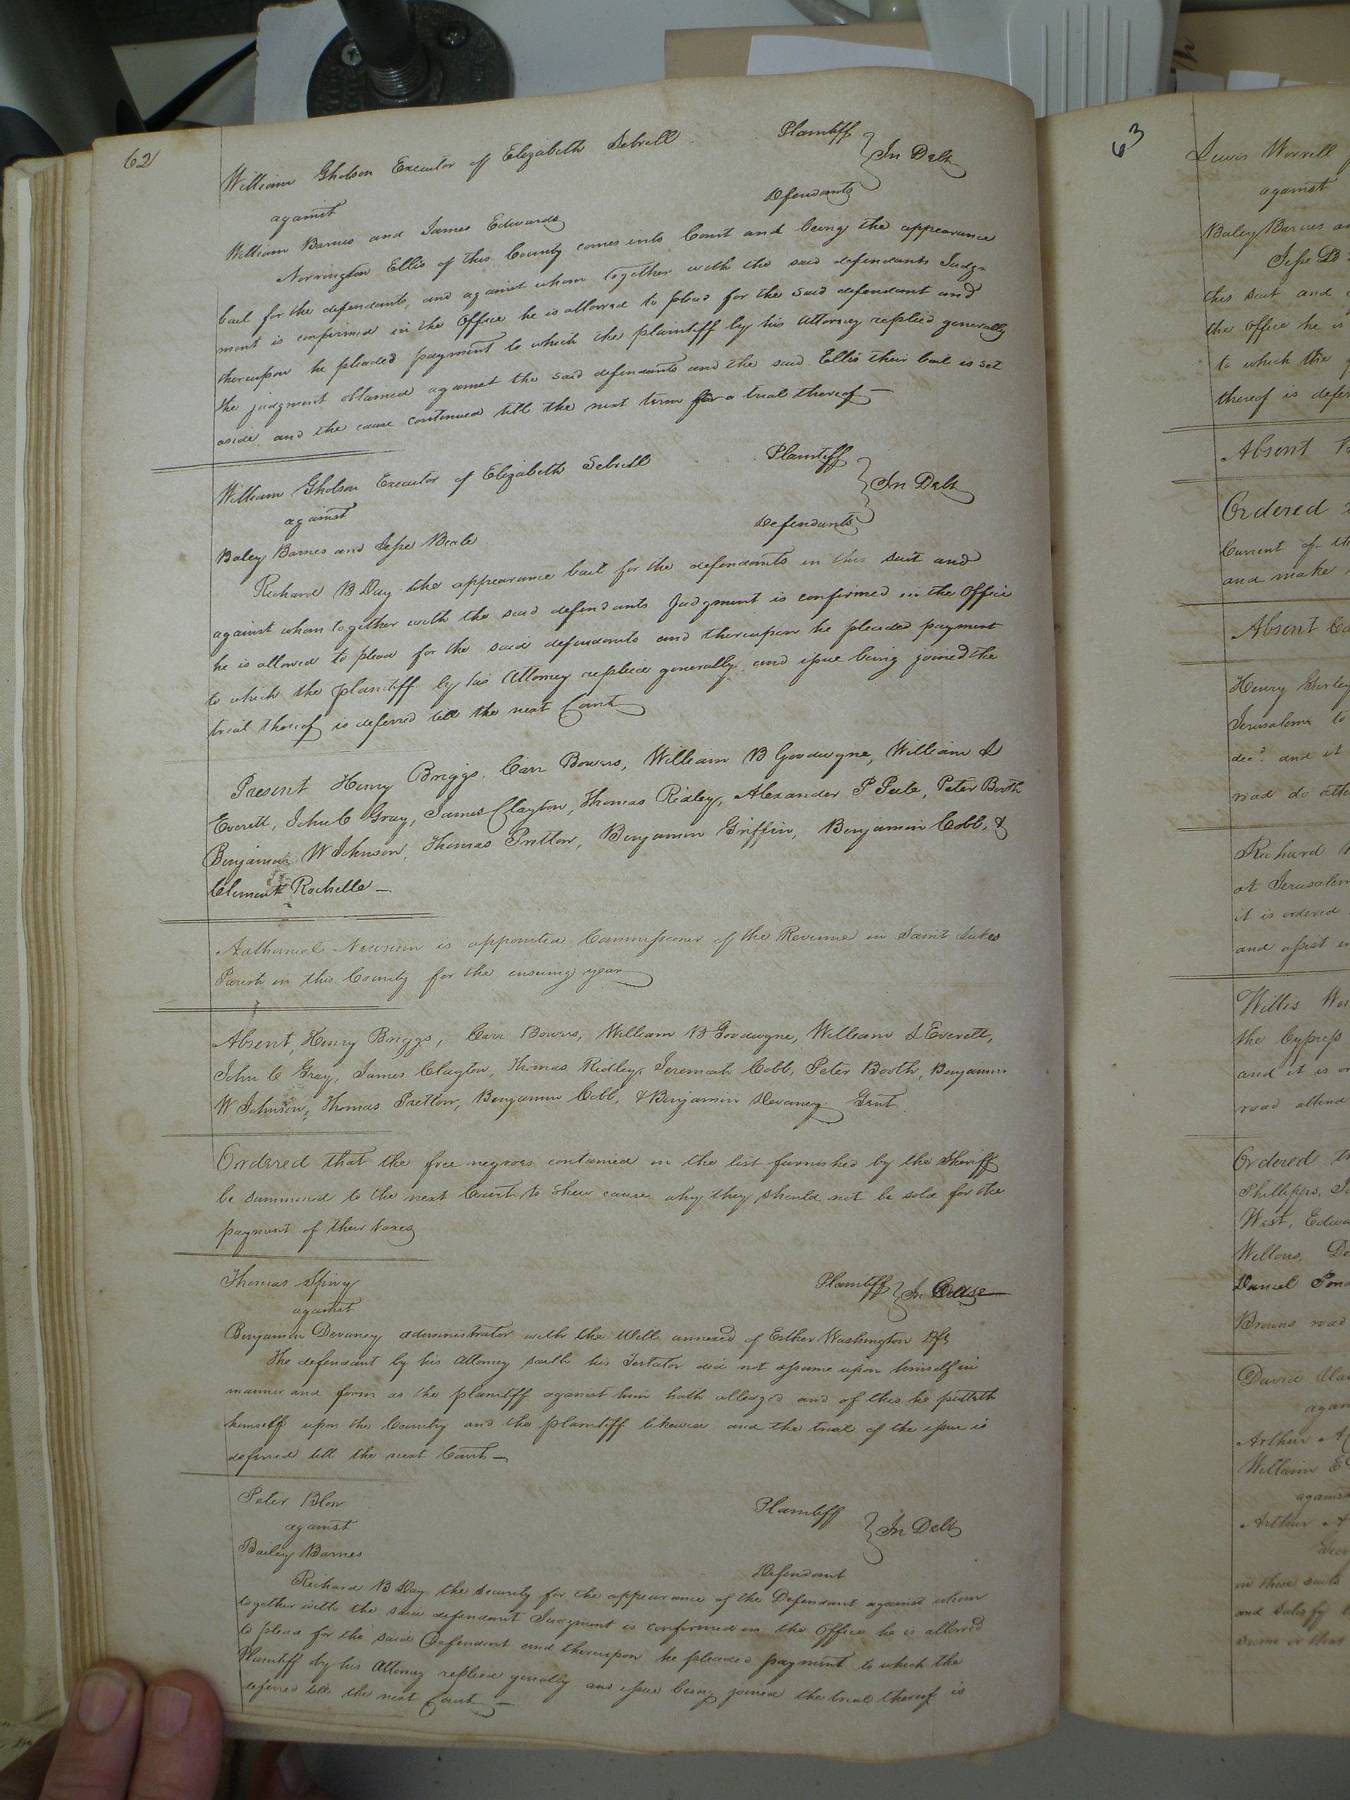 62
William Gholson Executor of Elizabeth Sebrell Plaintiff
against In Debt
William Barnes and James Edwards Defendants
Norrington Ellis of this County comes into Court and being the appearance
bail for the defendants, and against whom together with the said defendants Judg-
ment is confirmed in the Office he is allowed to plead for the said defendant and
thereupon he pleaded payment to which the plaintiff by his Attorney replied generally
the judgment obtained against the said defendants and the said Ellis their bail is set
aside and the cause continued till the next term for a trial thereof
William Gholson Executor of Elizabeth Sebrell Plaintiff
against In Debt
Baley Barnes and Jesse Beale Defendants
Richard B Day the appearance bail for the defendants in this suit and
against whom together with the said defendants Judgment is confirmed in the Office
he is allowed to plead for the said defendants and thereupon he pleaded payment
to which the plaintiff by his Attorney replied generally and issue being joined the
trial thereof is deferred till the next Court
Present Henry Briggs, Carr Bowers, William B Goodwyne, William D
Everett, John C Gray, James Clayton, Thomas Ridley, Alexander P Peele, Peter Booth
Benjamin W Johnson, Thomas Pretlow, Benjamin Griffin, Benjamin Cobb, &
Clement Rochelle
Nathaniel Newsum is appointed Commissioner of the Revenue in Saint Lukes
Parish in this County for the ensuing year
Absent, Henry Briggs, Carr Bowers, William B Goodwyne, William D Everett,
John C Gray, James Clayton, Thomas Ridley, Jeremiah Cobb, Peter Booth, Benjamin
W Johnson, Thomas Pretlow, Benjamin Cobb, & Benjamin Devaney Gent
Ordered that the free negroes contained in the list furnished by the Sheriff
be summoned to the next Court to shew cause why they should not be sold for the
payment of their taxes
Thomas Spivy Plaintiff
against In Case
Benjamin Devaney administrator with the Will annexed of Esther Washington Dft
The defendant by his Attorney saith his Testator did not assume upon himself in
manner and form as the plaintiff against him hath alledged and of this he putteth
himself upon the Country and the plaintiff likewise and the trial of the issue is
deferred till the next Court
Peter Blow Plaintiff
against In Debt
Bailey Barnes Defendant
Richard B Day the security for the appearance of the Defendant against whom
together with the said defendant Judgment is confirmed in the Office he is allowed
to plead for the said Defendant and thereupon he pleaded payment to which the
Plaintiff by his Attorney replied generally and issue being joined the trial thereof is
deferred till the next Court
63
Lewis Worrell
against
Baley Barnes
Jesse B
this suit and
the Office he is
to which the
thereof is
Absent
Ordered
Current of
and make
Absent
Henry
Jerusalem to
decd and it
road do
Richard
at Jerusalem
it is ordered
and assist
Willis
the Cypress
and it is
road attend
Ordered
Phillips,
West,
Wellons,
Daniel
Browns road
David
Arthur
William
against
Arthur
in these suits
and satisfy